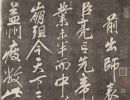 前出師表
臣亮言先帝
業未半而中
崩殂今天下三
益州疲敝